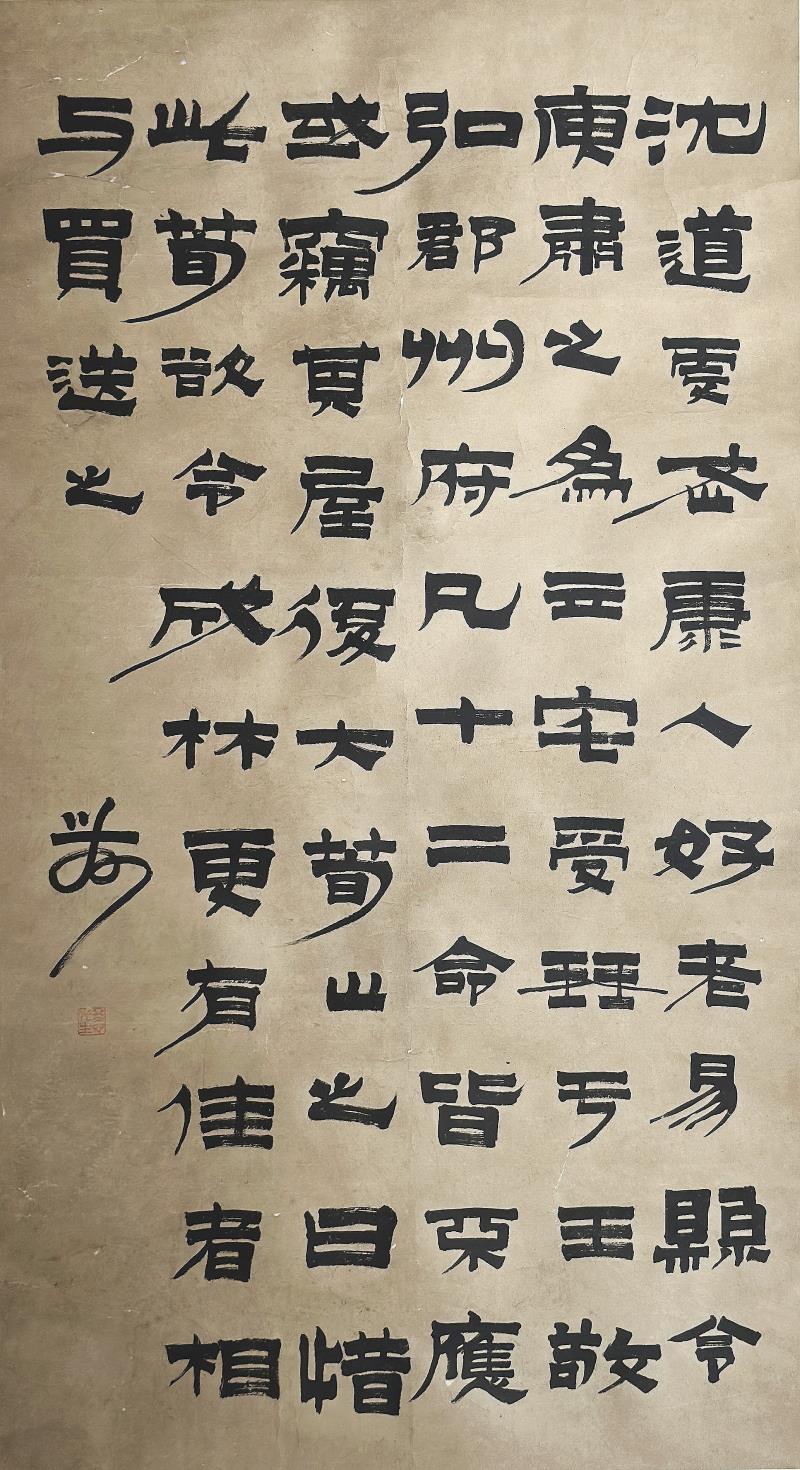 沈道虔武康人好老易縣令
庾肅之為立宅受琴于王敬
弘郡州府凡十二命皆不應
或竊其屋後大筍止之曰惜
此筍欲令成林更有佳者相
与買送之